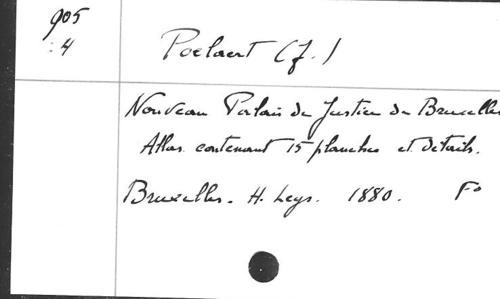 905
:4
Poelaert (J.)
Nouveau Palais de Justice de Bruxelles
Atlas contenant 15 planches et détails.
Bruxelles. H. Leys. 1880. Fº